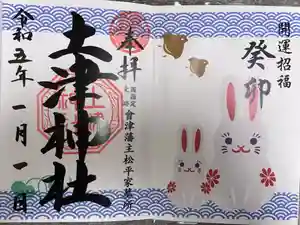 開運招福
癸卯
奉拝
奥州
會津藩主松平家墓所
土津神社
令和五年一月一日